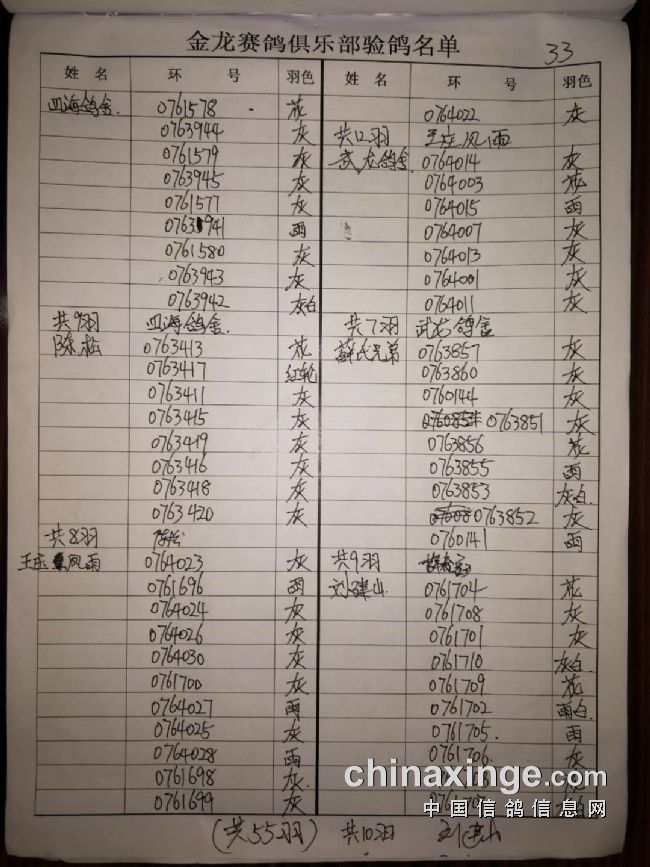 金龙赛鸽俱乐部验鸽名单 33
姓名 环号 羽色
四海鸽舍 0761578 花
0763944 灰
0761579 灰
0763945 灰
0761577 灰
0763941 雨
0761580 灰
0763943 灰
0763942 灰白
共9羽 四海鸽舍
陈松 0763413 花
0763417 红轮
0763411 灰
0763415 灰
0763419 灰
0763416 灰
0763418 灰
0763420 灰
共8羽 陈松
王庄 风雨 0764023 灰
0761696 雨
0764024 灰
0764026 灰
0764030 灰
0761700 灰
0764027 雨
0764025 灰
0764028 雨
0761698 灰
0761699 灰
姓名 环号 羽色
0764022 灰
共12羽 王庄风雨
武龙鸽舍 0764014 灰
0764003 花
0764015 雨
0764007 灰
0764013 灰
0764001 灰
0764011 灰
共7羽 武龙鸽舍
薛氏兄弟 0763857 灰
0763860 灰
0760144 灰
0763851 灰
0763856 花
0763855 雨
0763853 灰白
0763852 灰
0760141 雨
共9羽
刘建山 0761704 花
0761708 灰
0761701 灰
0761710 灰白
0761709 花
0761702 雨白
0761705 雨
0761706 灰
(共55羽) 共10羽 刘建山
chinaxinge.com
中国信鸽信息网